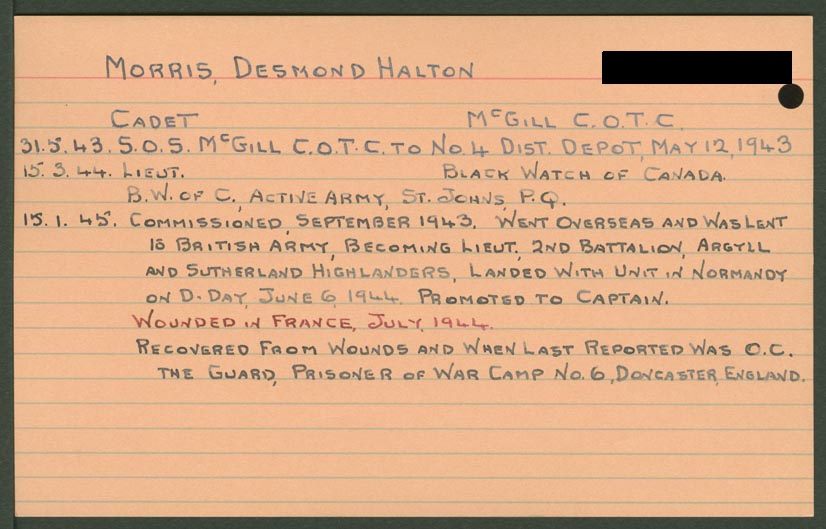 MORRIS, DESMOND HALTON
CADET McGILL C.O.T.C.
31.5.43. S.O.S. McGILL C.O.T.C. TO No.4 DIST. DEPOT, MAY 12, 1943
15.3.44. LIEUT. BLACK WATCH OF CANADA.
B.W. OF C., ACTIVE ARMY, ST. JOHNS, P.Q.
15.1.45. COMMISSIONED, SEPTEMBER 1943. WENT OVERSEAS AND WAS LENT
TO BRITISH ARMY, BECOMING LIEUT., 2ND BATTALION, ARGYLL
AND SUTHERLAND HIGHLANDERS, LANDED WITH UNIT IN NORMANDY
ON D-DAY, JUNE 6, 1944. PROMOTED TO CAPTAIN.
WOUNDED IN FRANCE, JULY, 1944.
RECOVERED FROM WOUNDS AND WHEN LAST REPORTED WAS O.C.
THE GUARD, PRISONER OF WAR CAMP No.6, DONCASTER, ENGLAND.